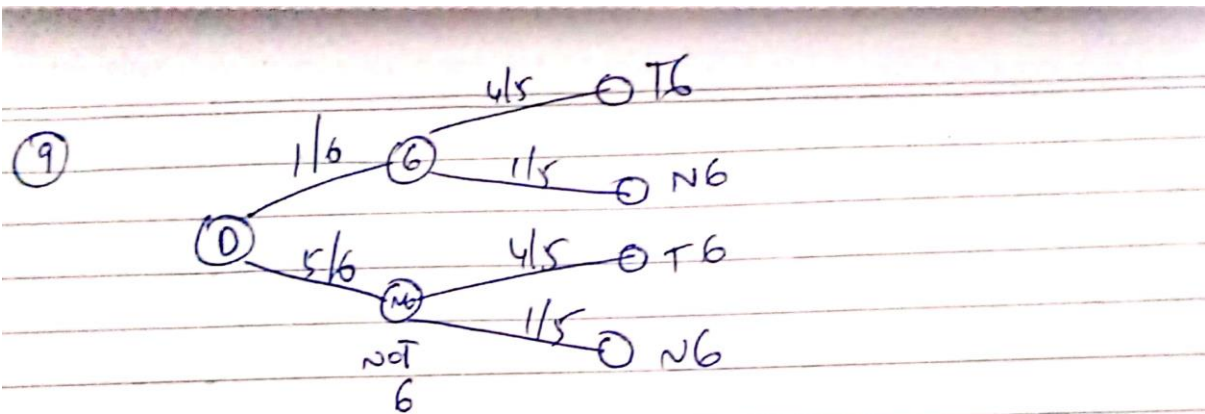 4/5 T6
9 1/6 6 1/5 N6
D 5/6 4/5 T6
N6 1/5 N6
NOT
6